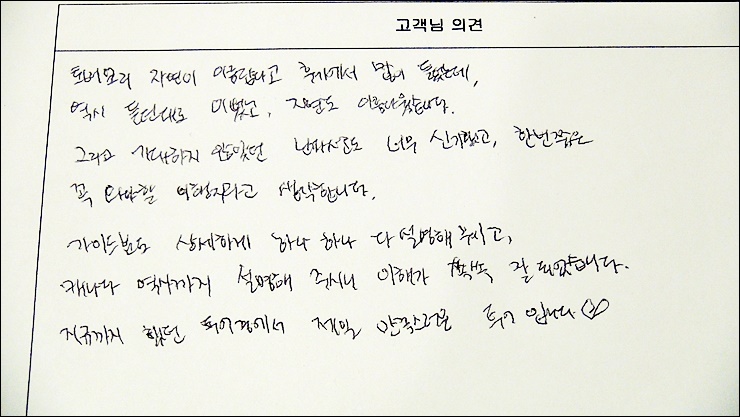 고객님 의견
토버모리 자연이 아름답다고 후기에서 많이 들었는데,
역시 듣던대로 이뻤고, 자연도 아름다웠습니다.
그리고 기대하지 않았던 난파선도 너무 신기했고, 한번쯤은
꼭 와야할 여행지라고 생각합니다.
가이드분도 상세하게 하나 하나 다 설명해 주시고,
캐나다 역사까지 설명해 주시니 이해가 쏙쏙 잘 되었습니다.
지금까지 했던 투어중에서 제일 만족스러운 투어 입니다